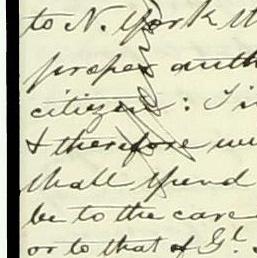 to N. York
proper auth
citizen: I
& therefore
shall spend
be to the care
or to that of Gl.